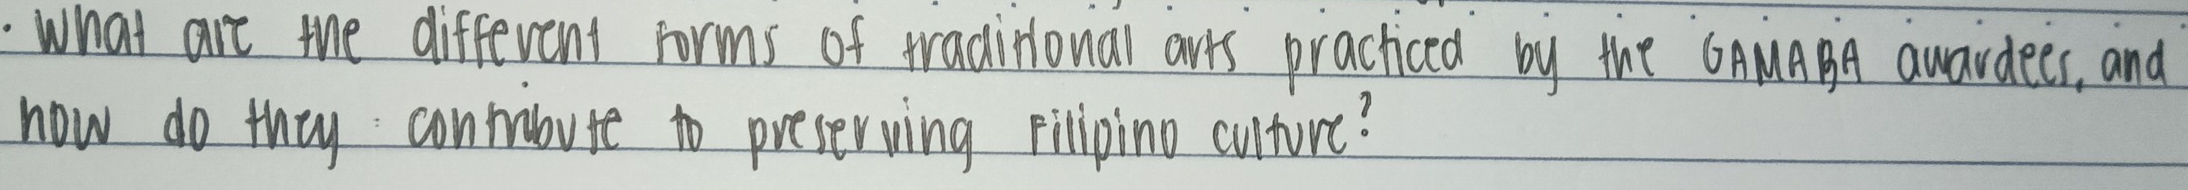 . What are the different forms of traditional arts practiced by the GAMABA awardees, and
how do they contribute to preserving Filipino culture?